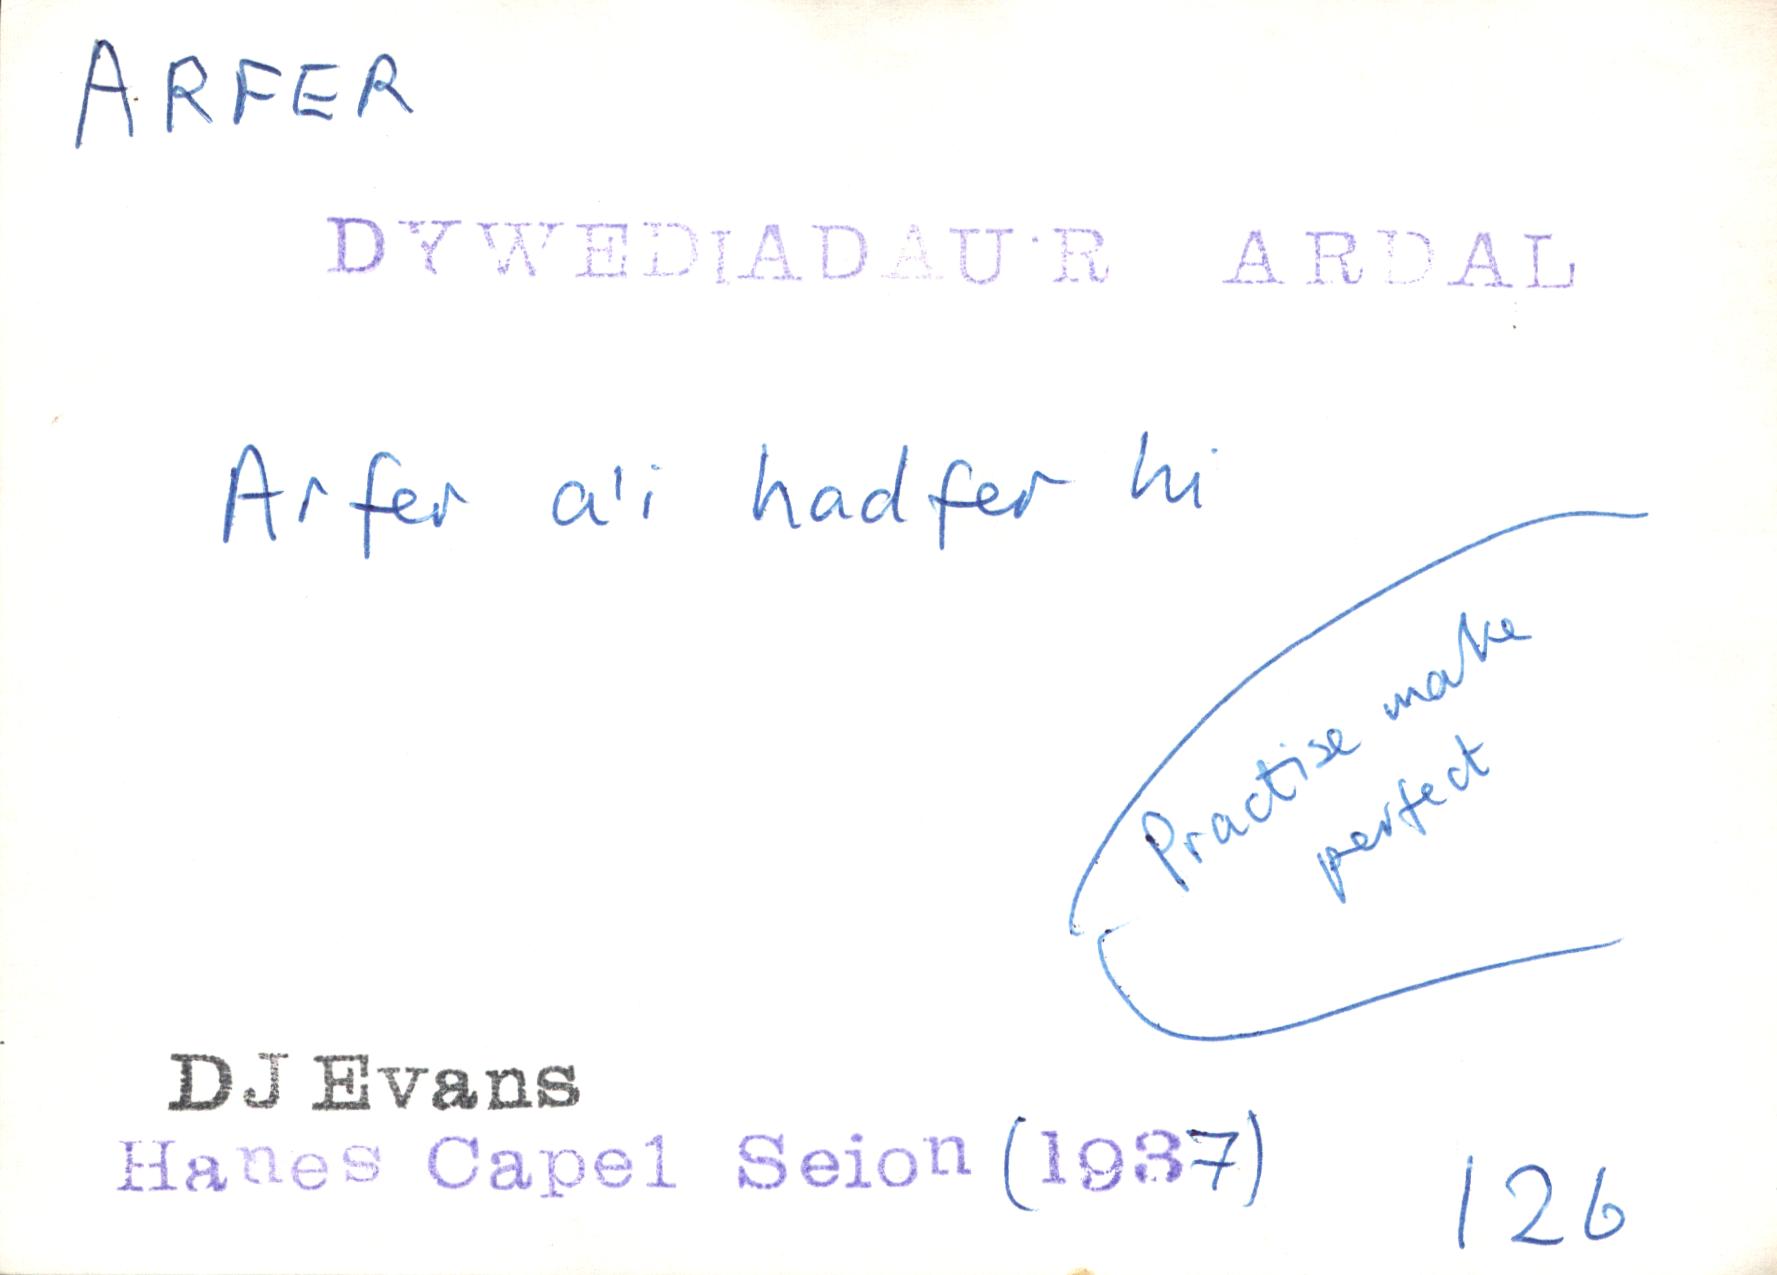 ARFER
DYWEDIADAU'R ARDAL
Arfer a'i hadfer hi
Practise make
perfect
DJ Evans
Hanes Capel Seion (1937)
126